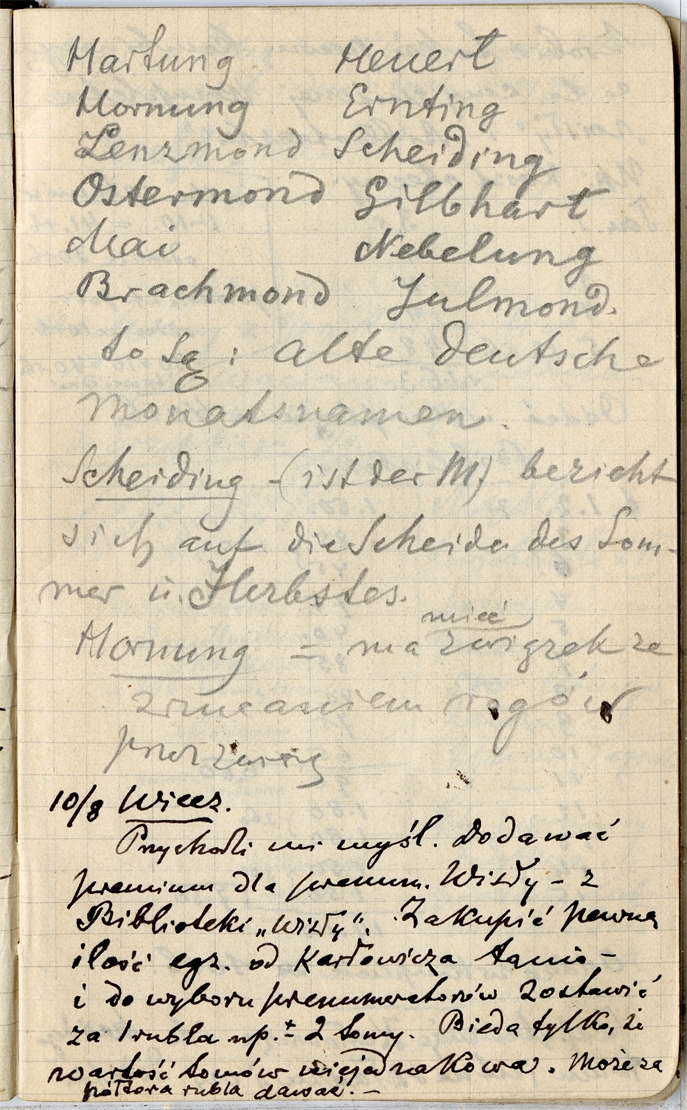 Hartung Heuert
Hornung Ernting
Lenzmond Scheiding
Ostermond Gilbhart
Mai Nebelung
Brachmond Julmond.
to są: alte deutsche
Monatsnamen.
Scheiding - (ist der M) bezieht
sich auf die Scheide des Som-
mer u. Herbstes.
mieć
Hornung = ma związek ze
zrzucaniem rogów
przez
10/8 Wiecz.
Przychodzi mi myśl. Dodawać
premium dla prenum. Wisły - z
Biblioteki „Wisły". Zakupić pewną
ilość egz. od Karłowicza tanio -
i do wyboru prenumeratorów zostawić
za 1 rubla np. 2 tomy. Bieda tylko, że
wartość tomów niejednakowa. Może za
półtora rubla dawać. -